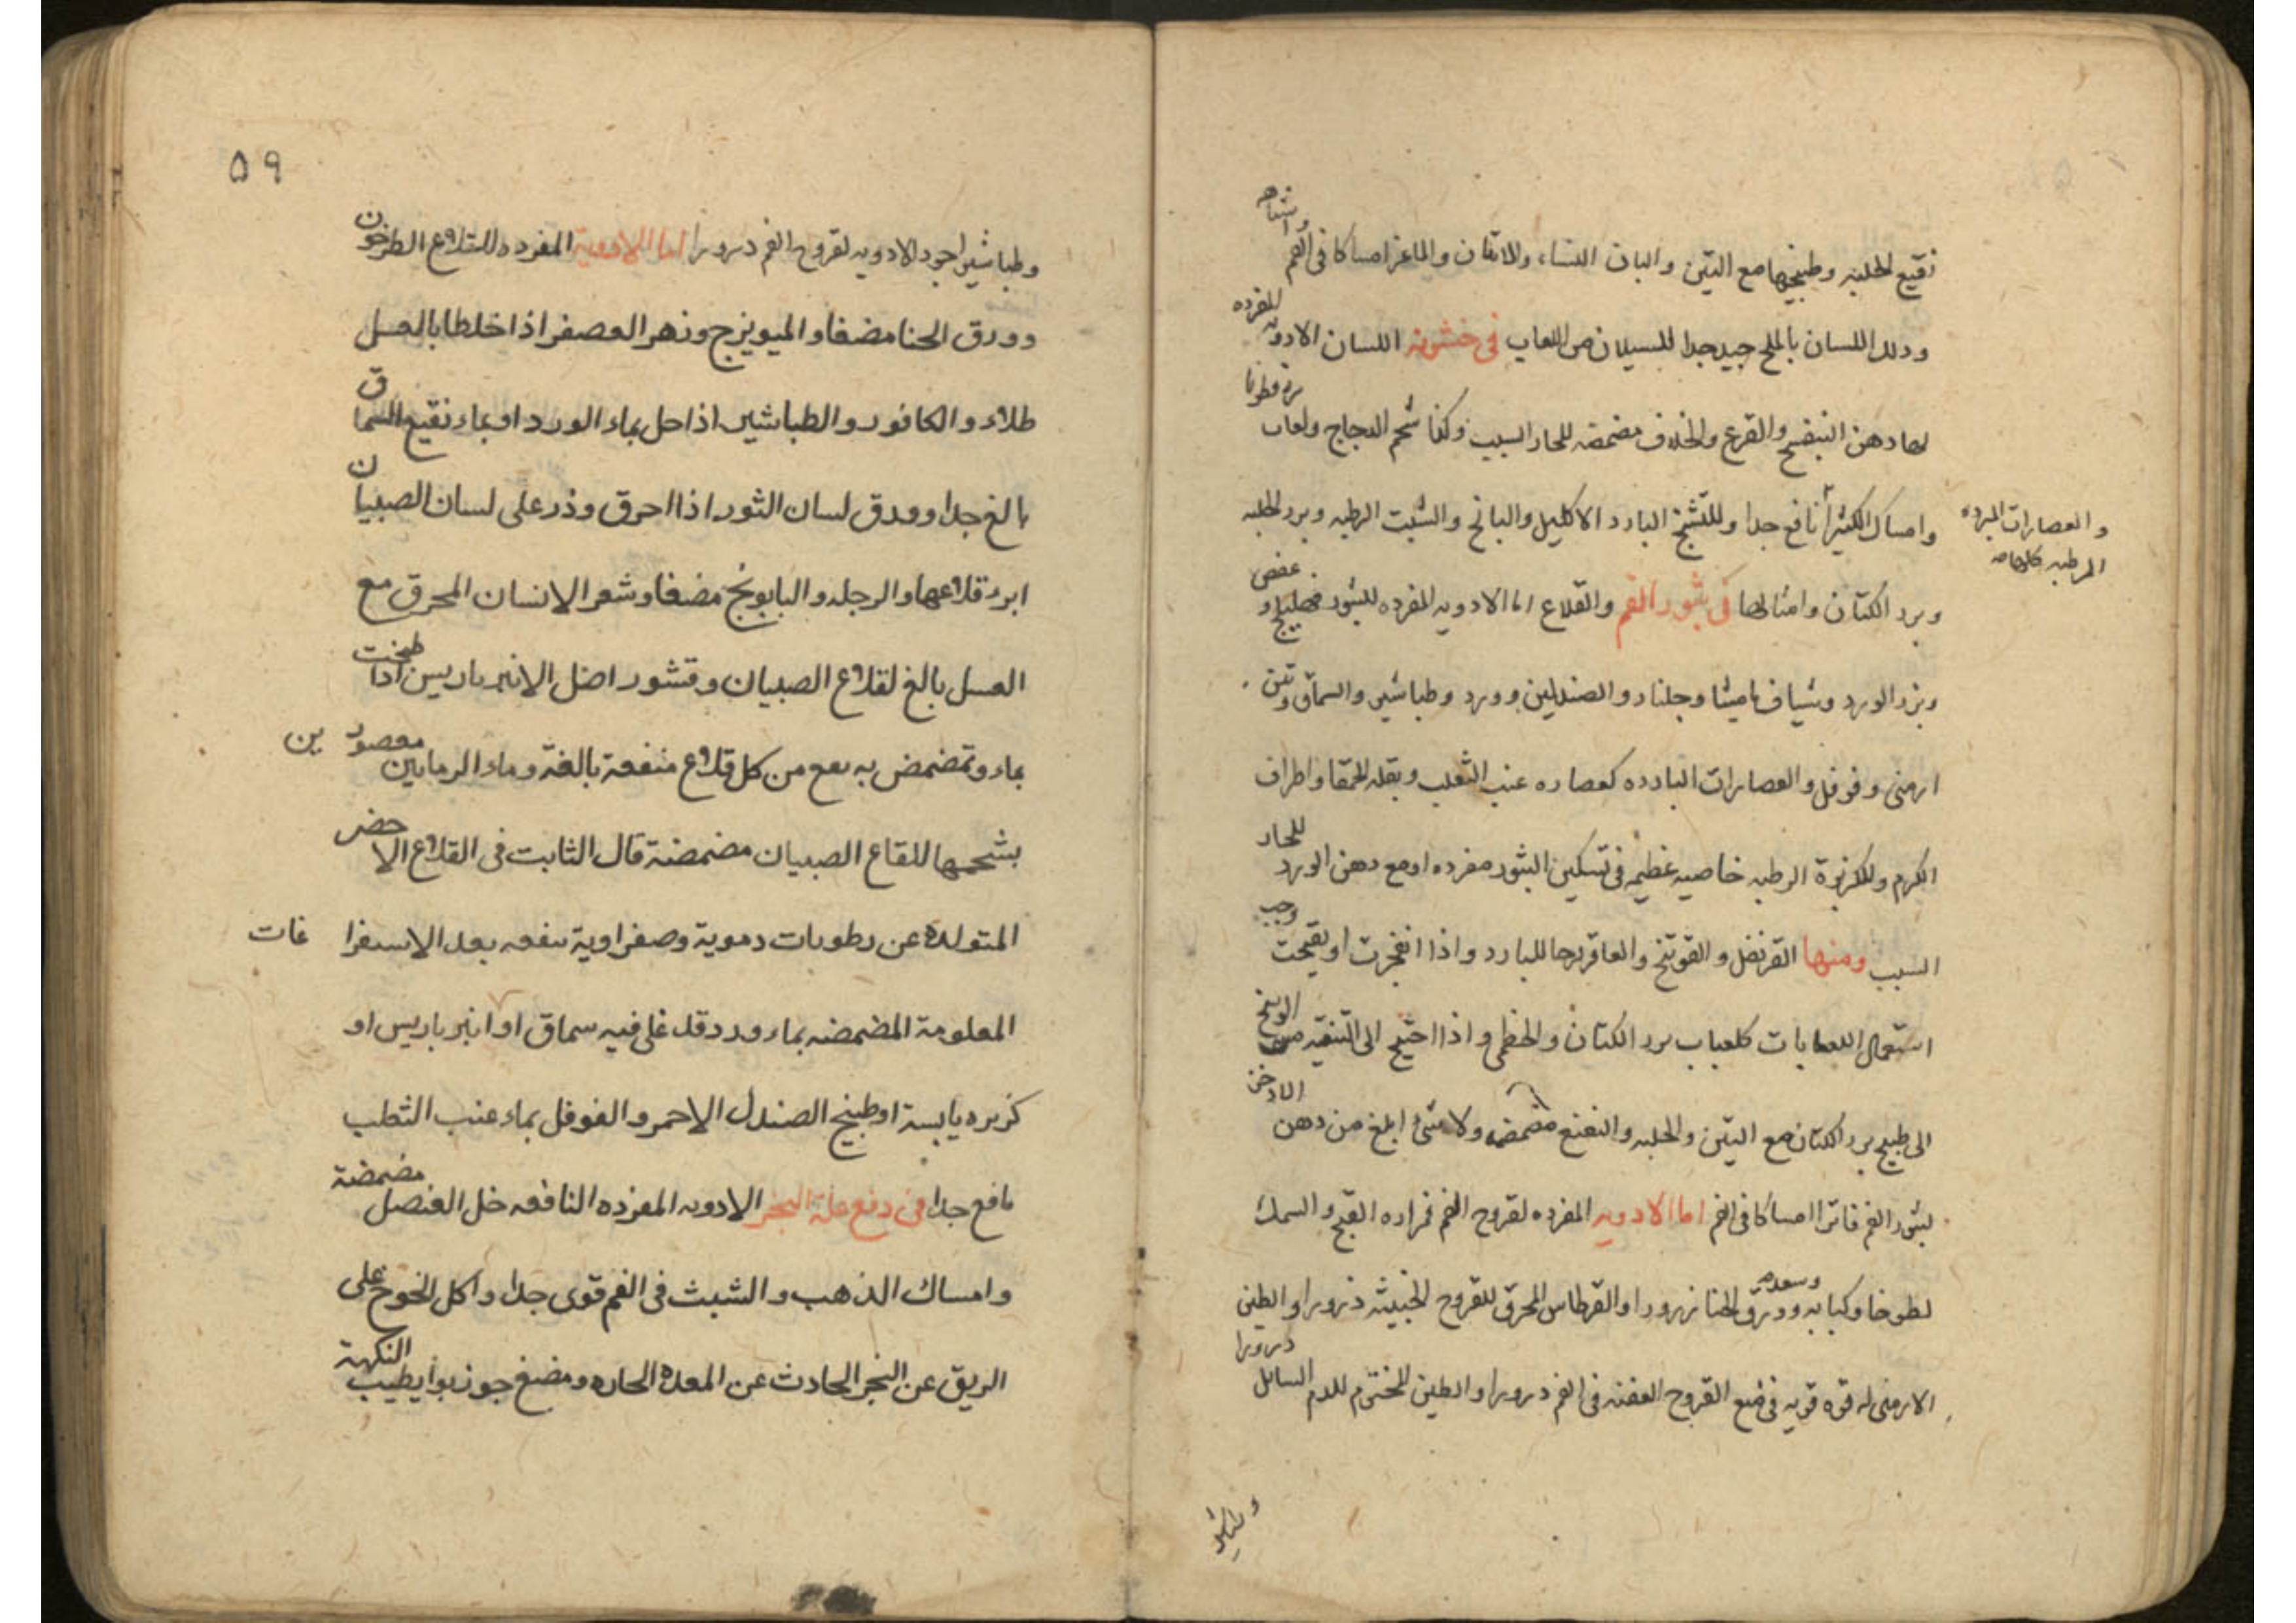 واشباهه
نقيع الحلبه وطبيخها مع التين والبان النساء والاتان والماعز امساكا فى الفم
ودلك اللسان بالملح جيد جدا للسيلان من اللعاب فى خشونه اللسان الادويه المفرده
لها دهن البنفسج والقرع والخلاف مضمضه للحار السبب وكذا شحم الدجاج ولعاب بزر قطونا
وامساك الكثيرا نافع جدا وللتشنج البارد الاكليل والبابونج والشبت الرطبه وبزر الحلبه
والعصارات المبرده
المرطبه كلها
وبزر الكتان وامثالها فى بثور الفم والقلاع اما الادويه المفرده للبثور عفص
وبزر الورد وشياف ماميثا وجلنار والصندلين وورد وطباشير والسماق
ارمنى وفوفل والعصارات البارده كعصاره عنب الثعلب وبقله الحمقا واطراف
الكرم وللكزبرة الرطبه خاصيه عظيمه فى تسكين البثور مفرده او مع دهن الورد للحار
السبب ومنها القرنفل والفوتنج والعاقرقرحا للبارد واذا انفجرت او تقيحت وجب
استعمال اللعابات كلعاب بزر الكتان والخطمى واذا احتيج الى التنقيه من الوسخ
الى طبيخ بزر الكتان مع التين والحلبه والنعنع مضمضه ولا شئ ابلغ من دهن الاذخر
لبثور الفم فاترا امساكا فى الفم اما الادويه المفرده لقروح الفم فمراره القبج والسمك
لطوخا وكبابه وسعد وورق الحنا ذرورا والقرطاس المحرق للقروح الخبيثه ذرورا والطين
الارمنى له قوه قويه فى منع القروح العفنه فى الفم ذرورا والطين المختوم للدم السائل ذرورا
وطباشير
٥٩
وطباشير اجود الادويه لقروح الفم ذرورا اما الادوية المفرده للقلاع الطرخون
وورق الحنا مضغا والميويزج وزهر العصفر اذا خلطا بالعسل
طلاء والكافور والطباشير اذا حل بماء الورد او بماء نقيع السماق
بالغ جدا وورق لسان الثور اذا احرق وذر على لسان الصبيان
ابرد قلاعها والرجله والبابونج مضغا وشعر الانسان المحرق مع
العسل بالغ لقلاع الصبيان وقشور اصل الانبرباريس اذا طبخت
بماء وتمضمض به نفع من كل قلاع منفعة بالغة وماء الرمانين معصورين
بشحمها للقاع الصبيان مضمضة قال الثابت فى القلاع الاحضر
المتولدة عن رطوبات دموية وصفراوية ينفعه بعد الاستفراغات
المعلومة المضمضه بماء ورد قد غلى فيه سماق او انبرباريس او
كزبره يابسة او طبيخ الصندل الاحمر والفوفل بماء عنب الثعلب
نافع جدا فى دفع علة البخر الادويه المفرده النافعه خل العنصل مضمضة
وامساك الذهب والشبث فى الفم قوى جدا واكل الخوخ على
الريق عن البخر الحادث عن المعدة الحاره ومضغ جوزبوا يطيب النكهة